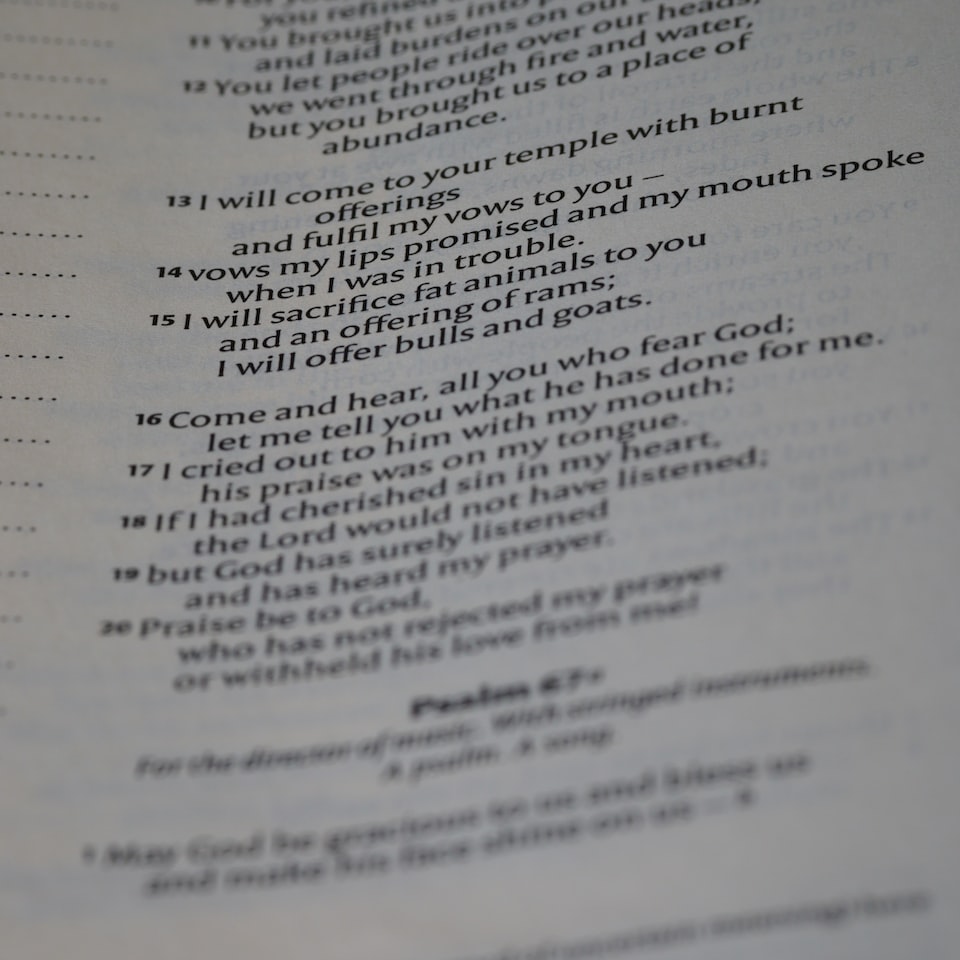 you refined
11 You brought us into
and laid burdens on our
12 You let people ride over our heads;
we went through fire and water,
but you brought us to a place of
abundance.
13 I will come to your temple with burnt
offerings
and fulfil my vows to you –
14 vows my lips promised and my mouth spoke
when I was in trouble.
15 I will sacrifice fat animals to you
and an offering of rams;
I will offer bulls and goats.
16 Come and hear, all you who fear God;
let me tell you what he has done for me.
17 I cried out to him with my mouth;
his praise was on my tongue.
18 If I had cherished sin in my heart,
the Lord would not have listened;
19 but God has surely listened
and has heard my prayer.
20 Praise be to God,
who has not rejected my prayer
or withheld his love from me!
Psalm 67
For the director of music. With stringed instruments.
A psalm. A song.
1 May God be gracious to us and bless us
and make his face shine on us –